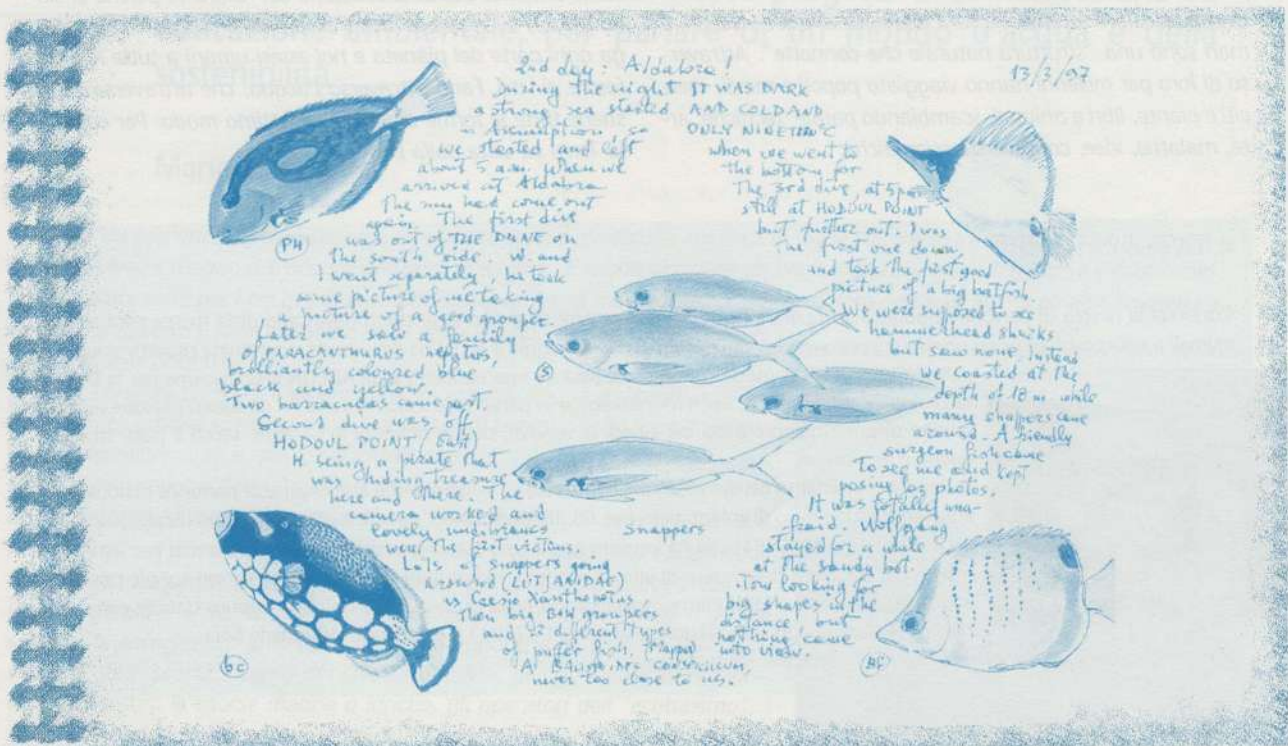 2nd day: Aldabra!
13/3/97
During the night
a strong sea started
at Assumption, so
we started and left
about 5 a.m. When we
arrived at Aldabra
the sun had come out
again. The first dive
was out of THE DUNE on
the south side. W. and
I went separately, he took
some picture of me taking
a picture of a good grouper.
Later we saw a family
of PARACANTHURUS hepatus
brilliantly coloured blue
black and yellow.
Two barracudas came past.
Second dive was off
HODOUL POINT (East)
H being a pirate that
was hiding treasure
here and there. The
camera worked and
lovely nudibrancs
were the first victims.
Lots of snappers going
around (LUTJANIDAE)
vs Caesio Xanthonotus
Then big B&W groupers
and 2 different types
of puffer fish.
A BALISTOIDES CONSPICILLUM,
never too close to us.
IT WAS DARK
AND COLD AND
ONLY NINETEEN °C
when we went to
the bottom for
The 3rd dive, at 5pm
still at HODOUL POINT
but further out. I was
the first one down
and took the first good
picture of a big batfish.
We were suposed to see
hammerhead sharks
but saw none. Instead
we coasted at the
depth of 18 m while
many snappers came
around. A friendly
surgeon fish came
to see me and kept
posing for photos.
It was totally una-
fraid. Wolfgang
stayed for a while
at the sandy bot-
tom looking for
big shapes in the
distance, but
nothing came
into view.
PH
S
snappers
bc
BF